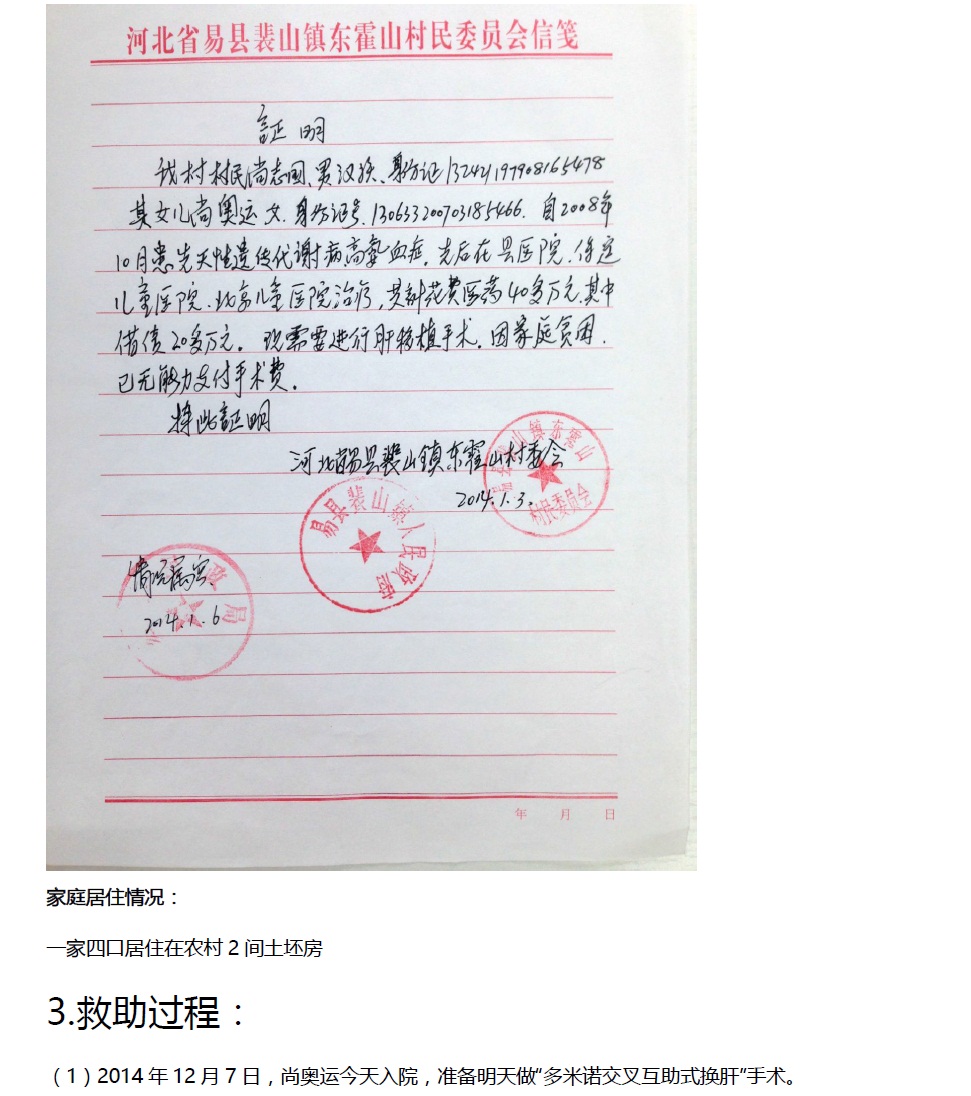 河北省易县裴山镇东霍山村民委员会信笺
証明
我村村民尚志国、男汉族、身份证132421197908165478
其女儿尚奥运 女.身份证号.130633200703185466. 自2008年
10月患先天性遗传代谢病,高氨血症。先后在县医院.保定
儿童医院.北京儿童医院治疗,共计花费医药40多万元.其中
借债20多万元。现需要进行肝移植手术。因家庭贫困.
已无能力支付手术费。
特此証明
河北省易县裴山镇东霍山村委会
2014.1.3.
易县裴山镇东霍山
村民委员会
易县裴山镇人民政府
情况属实.
2014.1.6
政局
年 月 日
家庭居住情况：
一家四口居住在农村 2 间土坯房
3.救助过程：
（1）2014 年 12 月 7 日，尚奥运今天入院，准备明天做“多米诺交叉互助式换肝”手术。